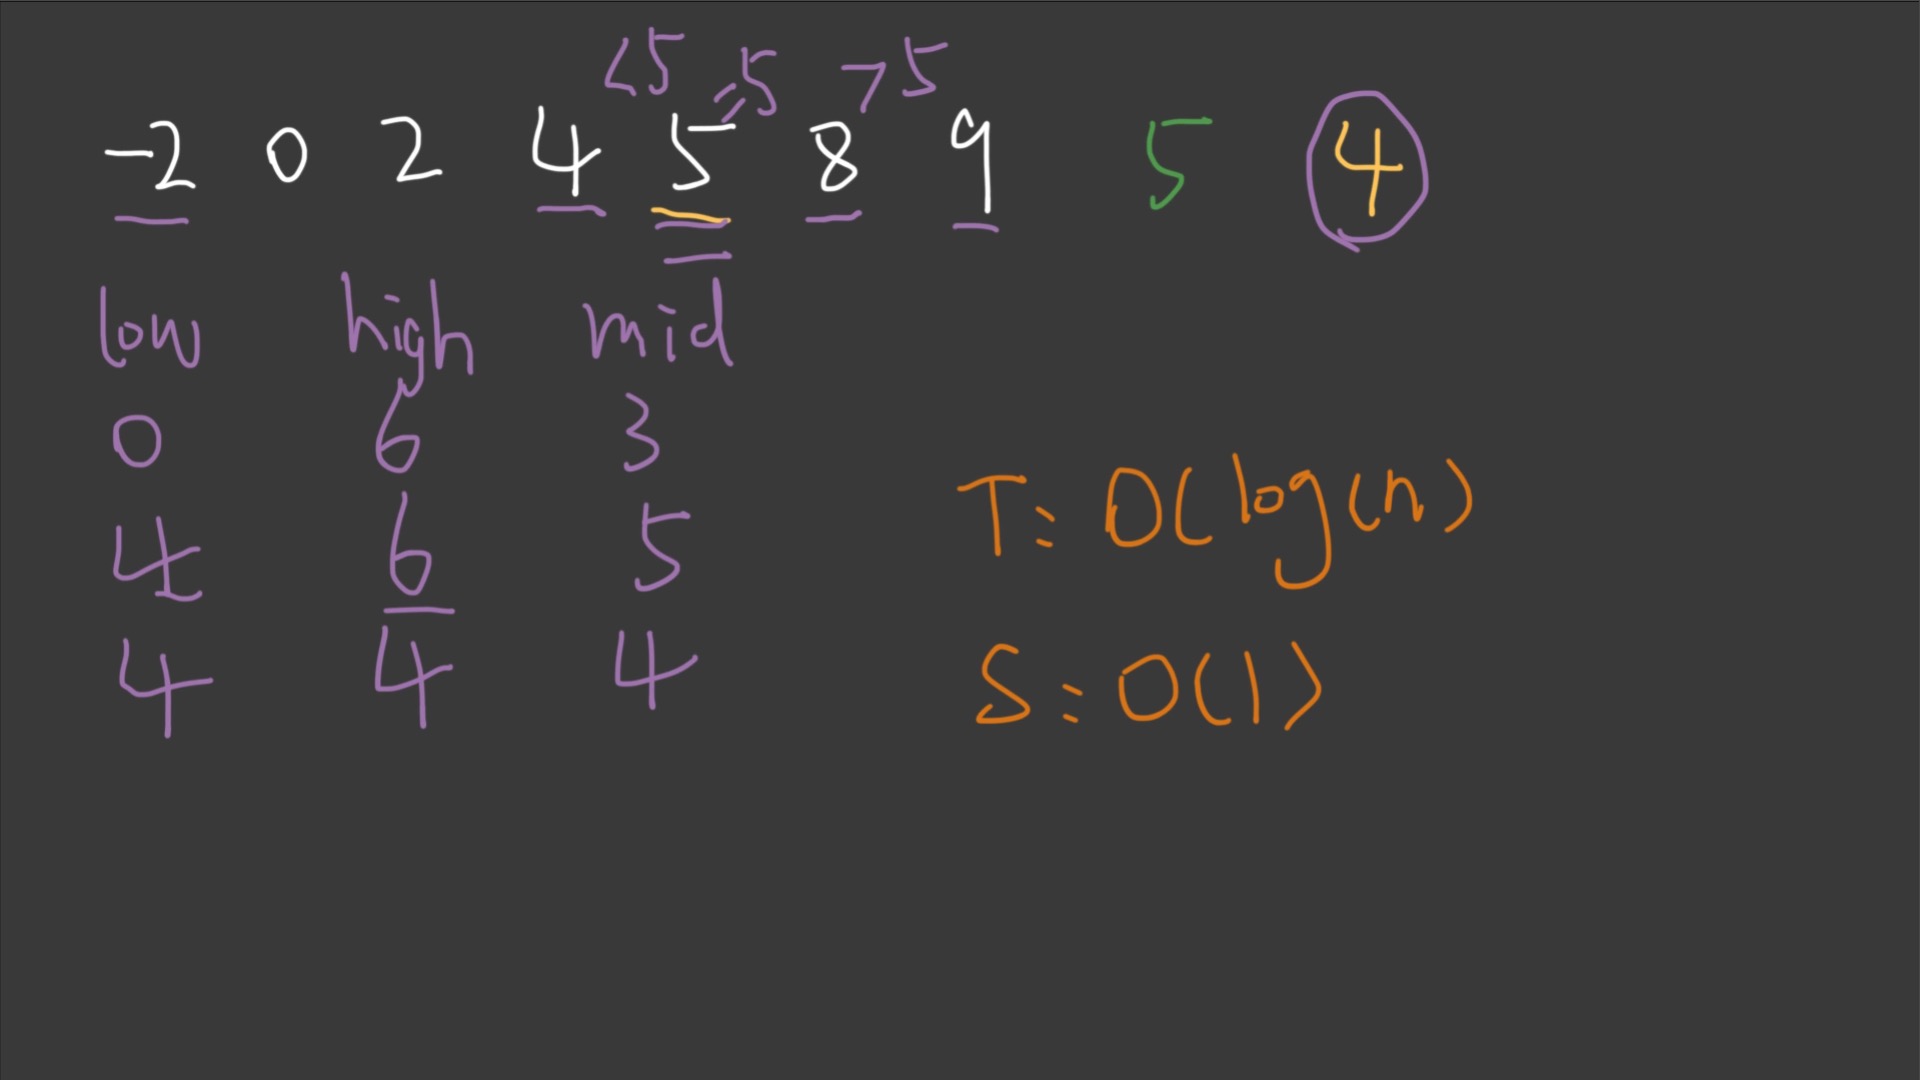 <5 =5 >5
-2 0 2 4 5 8 9 5 4
low high mid
0 6 3
4 6 5
4 4 4
T: O(log(n)
S: O(1)